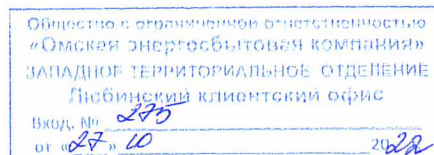 Общество с ограниченной ответственностью
«Омская энергосбытовая компания»
ЗАПАДНОЕ ТЕРРИТОРИАЛЬНОЕ ОТДЕЛЕНИЕ
Любинский клиентский офис
Вход. № 275
от «27» 10 2022